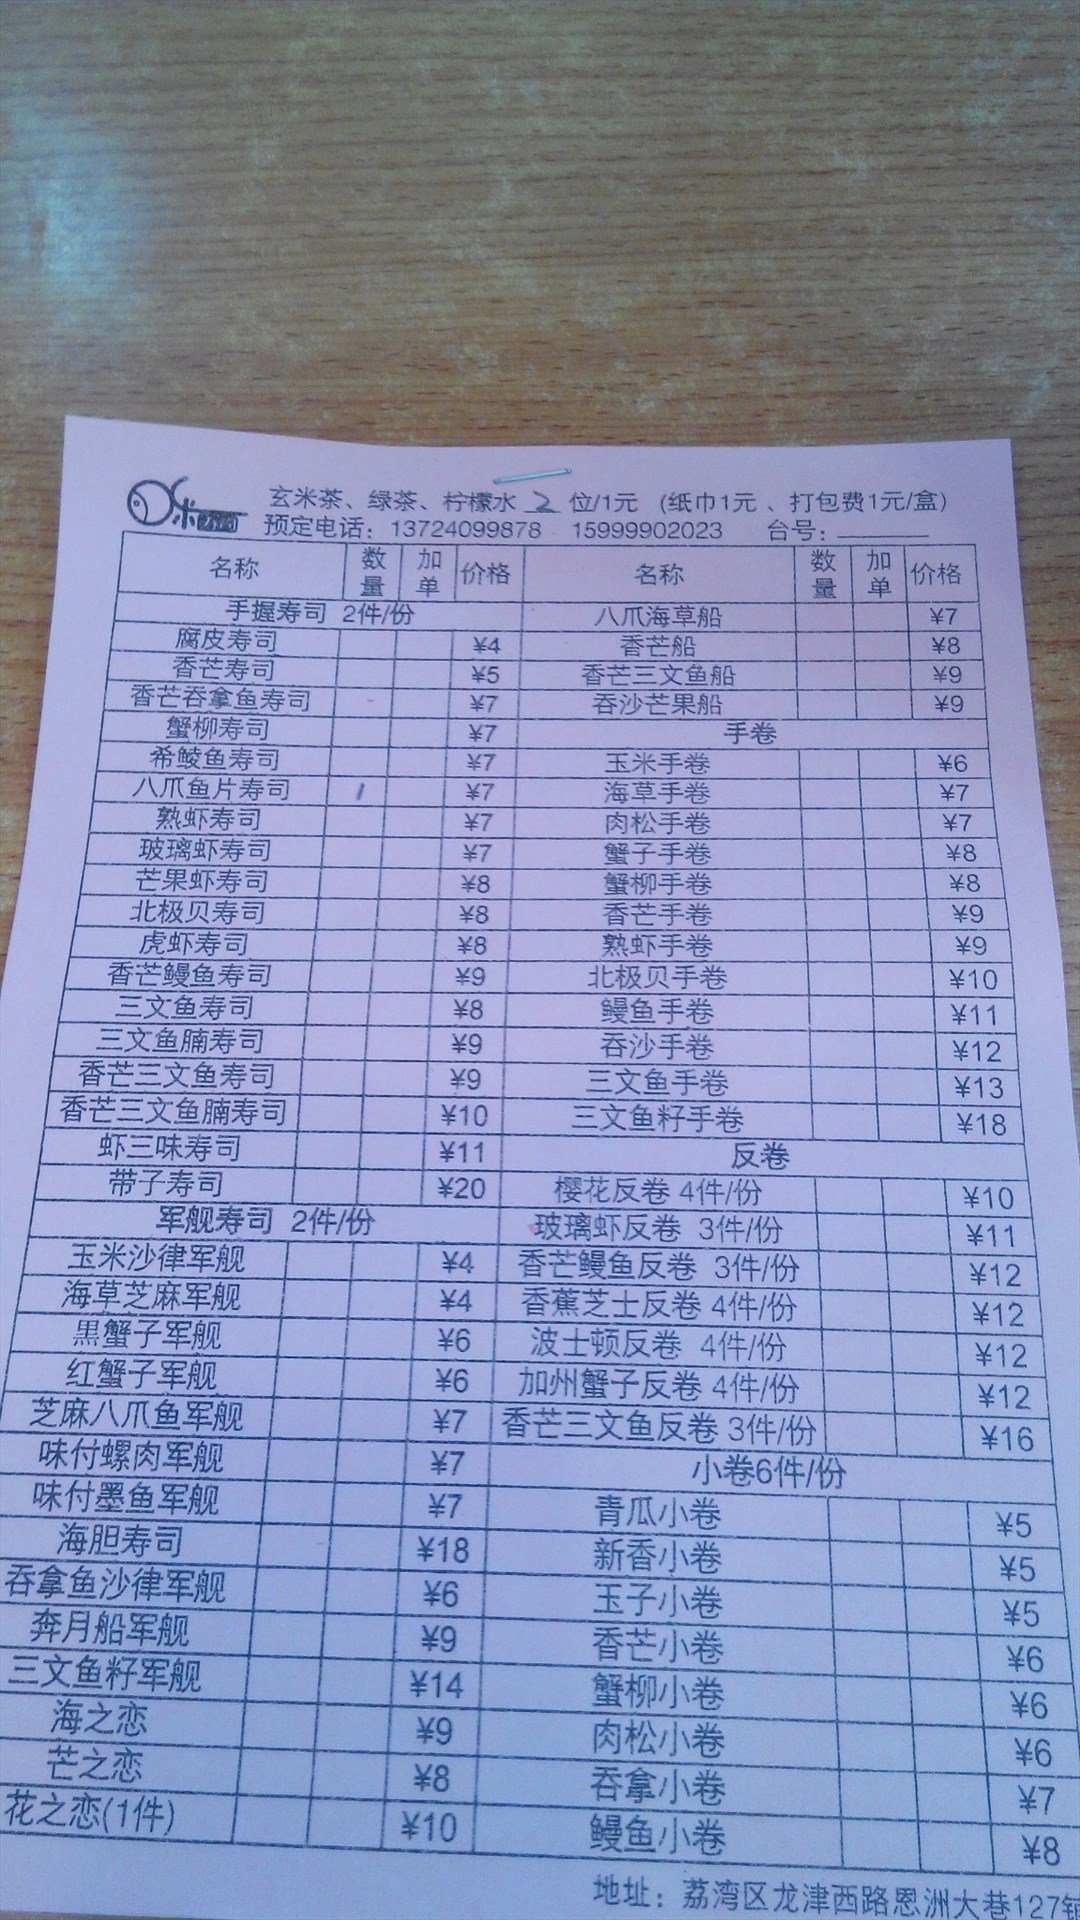 米
寿司
玄米茶、绿茶、柠檬水 2 位/1元 (纸巾1元 、打包费1元/盒)
预定电话: 13724099878 15999902023 台号:
名称 数量 加单 价格 名称 数量 加单 价格
手握寿司 2件/份 八爪海草船 ¥7
腐皮寿司 ¥4 香芒船 ¥8
香芒寿司 ¥5 香芒三文鱼船 ¥9
香芒吞拿鱼寿司 ¥7 吞沙芒果船 ¥9
蟹柳寿司 ¥7 手卷
希鲮鱼寿司 ¥7 玉米手卷 ¥6
八爪鱼片寿司 1 ¥7 海草手卷 ¥7
熟虾寿司 ¥7 肉松手卷 ¥7
玻璃虾寿司 ¥7 蟹子手卷 ¥8
芒果虾寿司 ¥8 蟹柳手卷 ¥8
北极贝寿司 ¥8 香芒手卷 ¥9
虎虾寿司 ¥8 熟虾手卷 ¥9
香芒鳗鱼寿司 ¥9 北极贝手卷 ¥10
三文鱼寿司 ¥8 鳗鱼手卷 ¥11
三文鱼腩寿司 ¥9 吞沙手卷 ¥12
香芒三文鱼寿司 ¥9 三文鱼手卷 ¥13
香芒三文鱼腩寿司 ¥10 三文鱼籽手卷 ¥18
虾三味寿司 ¥11 反卷
带子寿司 ¥20 樱花反卷 4件/份 ¥10
军舰寿司 2件/份 玻璃虾反卷 3件/份 ¥11
玉米沙律军舰 ¥4 香芒鳗鱼反卷 3件/份 ¥12
海草芝麻军舰 ¥4 香蕉芝士反卷 4件/份 ¥12
黑蟹子军舰 ¥6 波士顿反卷 4件/份 ¥12
红蟹子军舰 ¥6 加州蟹子反卷 4件/份 ¥12
芝麻八爪鱼军舰 ¥7 香芒三文鱼反卷 3件/份 ¥16
味付螺肉军舰 ¥7 小卷6件/份
味付墨鱼军舰 ¥7 青瓜小卷 ¥5
海胆寿司 ¥18 新香小卷 ¥5
吞拿鱼沙律军舰 ¥6 玉子小卷 ¥5
奔月船军舰 ¥9 香芒小卷 ¥6
三文鱼籽军舰 ¥14 蟹柳小卷 ¥6
海之恋 ¥9 肉松小卷 ¥6
芒之恋 ¥8 吞拿小卷 ¥7
花之恋(1件) ¥10 鳗鱼小卷 ¥8
地址: 荔湾区龙津西路恩洲大巷127铺